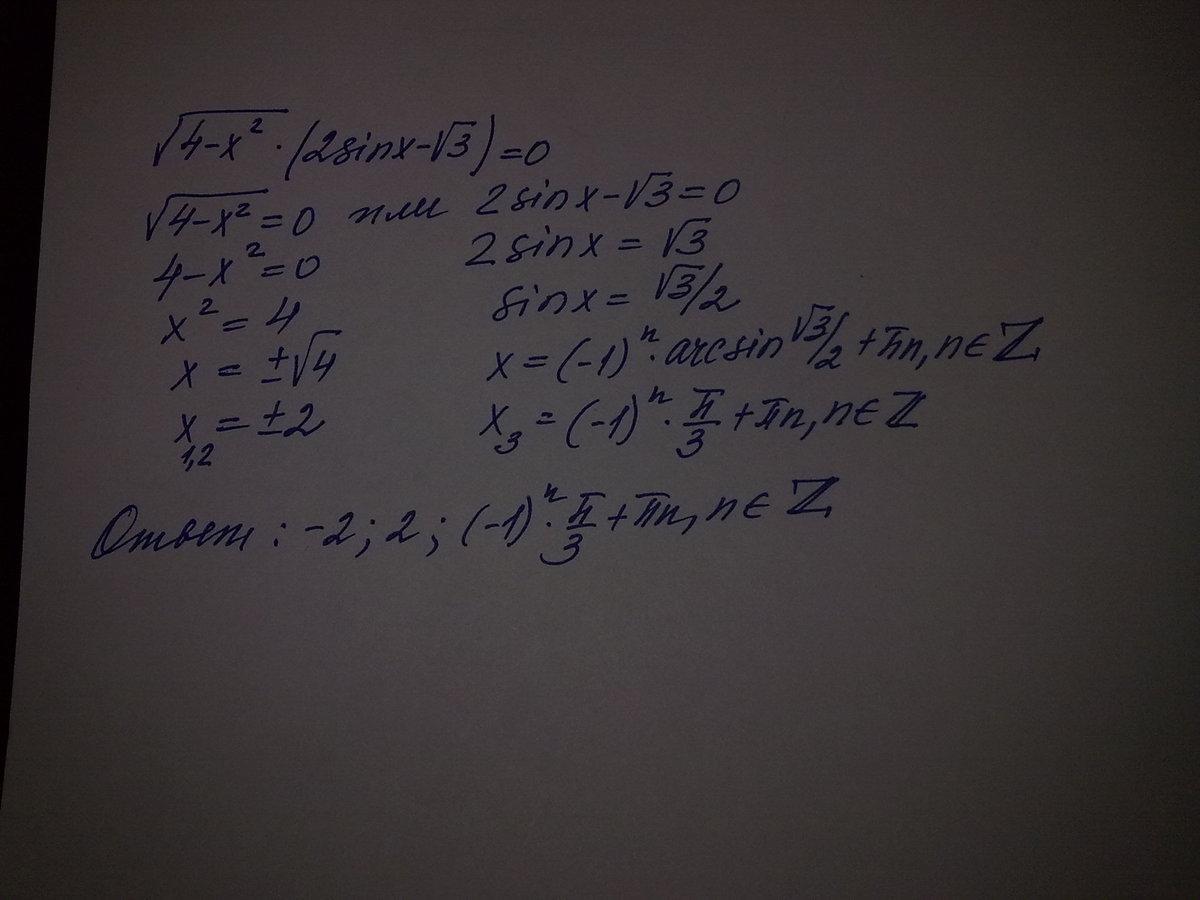 √(4-x²) · (2sinx-√3) = 0
√(4-x²) = 0 или 2sinx-√3=0
4-x²=0 2sinx = √3
x² = 4 sinx = √3/2
x = ±√4 x = (-1)ⁿ · arcsin √3/2 + πn, n ∈ ℤ
x₁,₂ = ±2 x₃ = (-1)ⁿ · π/3 + πn, n ∈ ℤ
Ответ: -2; 2; (-1)ⁿ · π/3 + πn, n ∈ ℤ